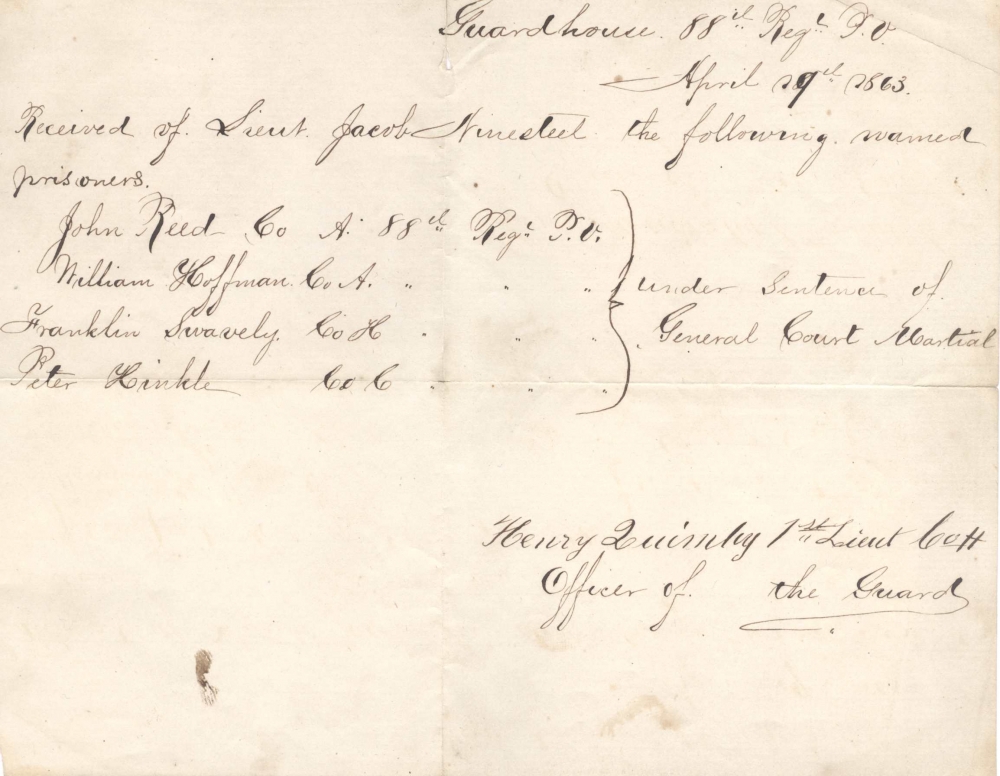 Guardhouse. 88th Regt P.V.
April 29th 1863.
Received of. Lieut. Jacob Ninesteel the following. named
prisoners.
John Reed Co A. 88th Regt P.V.
William Hoffman. Co A. " " " } under Sentence of.
Franklin Swavely. Co H " " " General Court Martial
Peter Hinkle Co C " " "
Henry Quimby 1st Lieut Co H
Officer of. the Guard